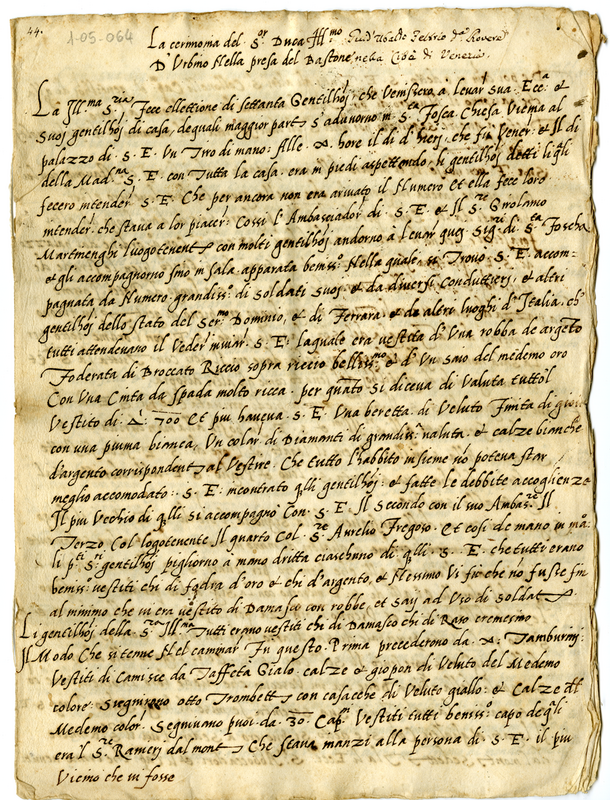 44.
1-05-064
La cerimonia del S.or Duca Ill.mo Guid'Ubaldo Feltrio d.la Rovere
D'Urbino Nella presa del Bastone nella Città di Venezia
La Ill.ma S.ria Fece ellettione di settanta Gentilhoj, che venissero à levar sua Ecc.a et
suoj gentilhoj di casa, dequali maggior part s'adunorno in S.ta Fosca Chiesa Vicina al
palazzo di S. E. Un Tiro di mano: Alle hore il di d'hierj, che fu Vener. et il di
della Mad.na S. E. con Tutta la casa, era in piedi aspettendo, li gentilhoj detti li q̃li
fecero intender S. E. Che per ancora non era arivato il Numero et ella fece loro
intender, che stava a lor piacer: Cossì l'Ambasciador di S. E. et Il S.re Girolamo
Martinenghi luogotenent con molti gentilhoj andorno a levar quej Sig.ri di S.ta Foscha
et gli accompagnorno sino in sala apparata beniss.o Nella quale si Trovo S. E. accom=
pagnata da Numero grandiss.o di Soldati Suoj et da diversi Conduttierj, et altri
gentilhoj dello stato del Ser.mo Dominio, et di Ferrara, et de altri luoghi d'Italia, ch'
tutti attendevano il Veder mirar. S. E. laquale era vestita d'Una robba de argeto
Foderata di Broccato Riccio sopra riccio belliss.mo, et d'Un Saio del medemo oro
Con Una Cinta da spada molto ricca. per quãto si diceva di Valuta tutto'l
Vestito di 700 Et piu haveva. S. E. Una beretta di Veluto Finita di gioie
con una piuma bianca, Un colar di Diamanti di grandiss.a valuta, et calze bianche
d'argento corrispondent al Vestire. Che tutto l'habbito insieme nõ poteva star
meglio accomodato: S. E. incontrato q̃lli gentilhoj: et fatte le debbite accoglienze
Il piu Vechio di q̃lli si accompagnò Con. S. E. Il Secondo con il suo Ambas.re Il
Terzo Col logotenente Il quarto Col S.re Aurelio Fregoso. Et cosi de mano in mã:
li p.ti S.ri gentilhoj pighorno a mano dritta ciaschuno di q̃lli. S. E. che tutti erano
beniss.o vestiti chi di d'oro et chi d'argento, et Nessuno Vi fu che nõ fusse fin
al minimo che vi era vestito di Damasco con robbe, et Saij ad Uso di Soldat
Li gentilhoj della S.ria Ill.ma Tutti erano vestiti chi di Damasco chi di Raso cremesino
Il Modo Che si tenne Nel caminar Fu questo. Prima precederono da X: Tamburinj
Vestiti di Camisce da Taffeta Gialo. calze et giopon di Veluto del Medemo
colore. Sieguivano otto Trombett con casacche di Veluto giallo: et Calze del
Medemo color. Seguivano puoi da 30. Cap.ni Vestiti tutti beniss.o capo de q̃li
era l S.re Ramerj dal mont Che stava inanzi alla persona di S. E. il piu
Vicino che vi fosse